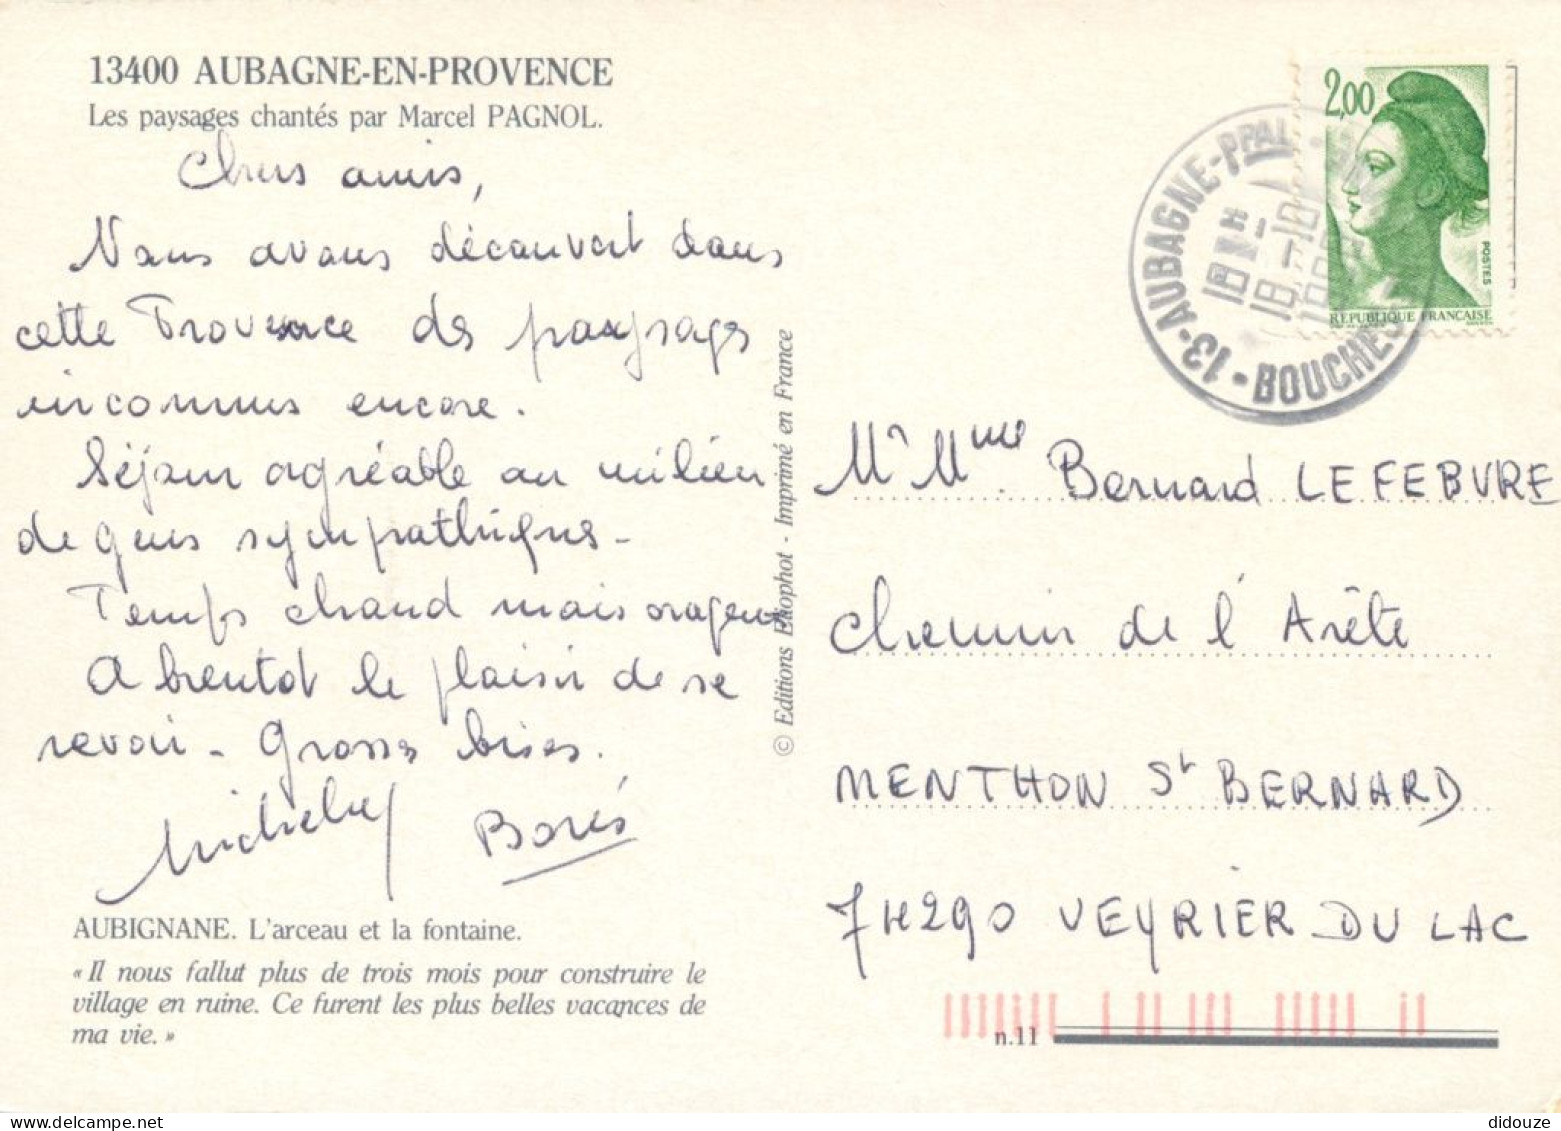 13400 AUBAGNE-EN-PROVENCE
Les paysages chantés par Marcel PAGNOL.
Chers amis,
Nous avons découvert dans
cette Provence des paysages
inconnus encore.
Séjour agréable au milieu
de gens sympathiques -
Temps chaud mais orageux
A bientôt le plaisir de se
revoir - Grosses bises.
Boris
AUBIGNANE. L'arceau et la fontaine.
« Il nous fallut plus de trois mois pour construire le
village en ruine. Ce furent les plus belles vacances de
ma vie. »
© Editions Eliophot - Imprimé en France
2,00
POSTES
RÉPUBLIQUE FRANÇAISE
13-AUBAGNE-PPAL
18 H
18-10
BOUCHES
Mr Mme Bernard LEFEBVRE
Chemin de l'Arête
MENTHON St BERNARD
74290 VEYRIER DU LAC
n.11
didouze